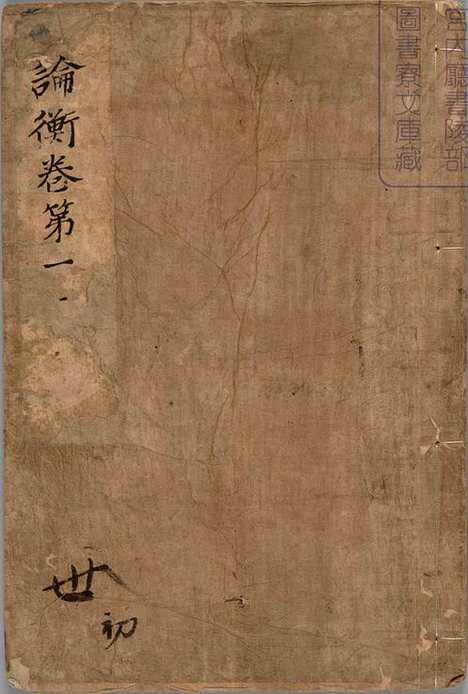 宮内廳書陵部
圖書寮文庫藏
論衡卷第一
初